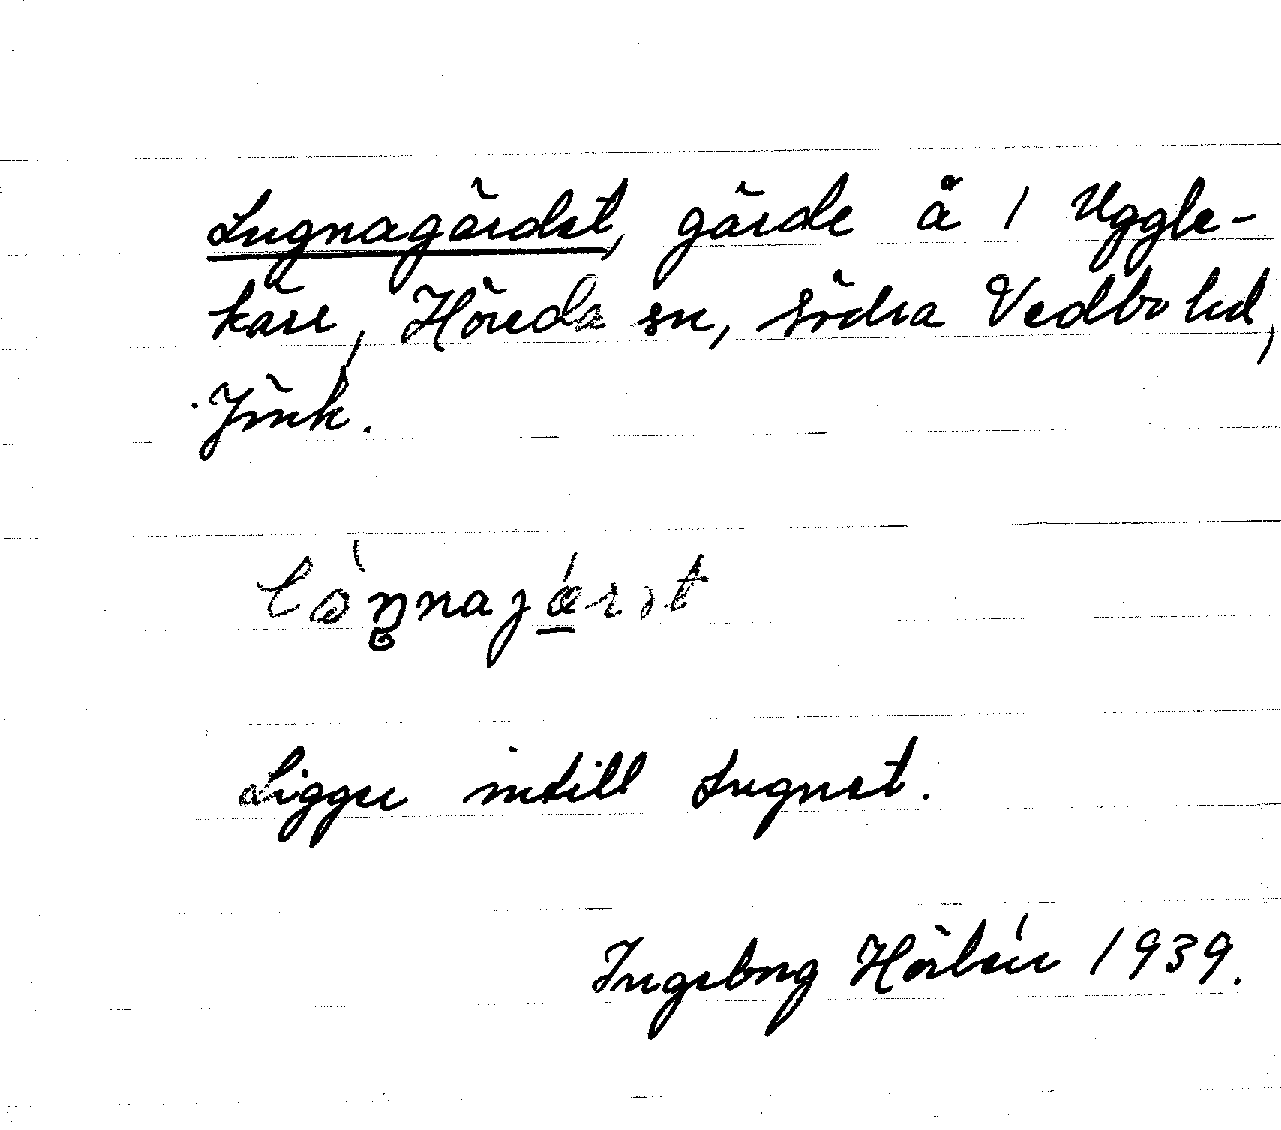 Lugnagärdet, gärde å 1 Uggle-
kärr, Höreda sn, Södra Vedbo hd,
Jönk.
Ligger intill Lugnet.
Ingeborg Hörbén 1939.